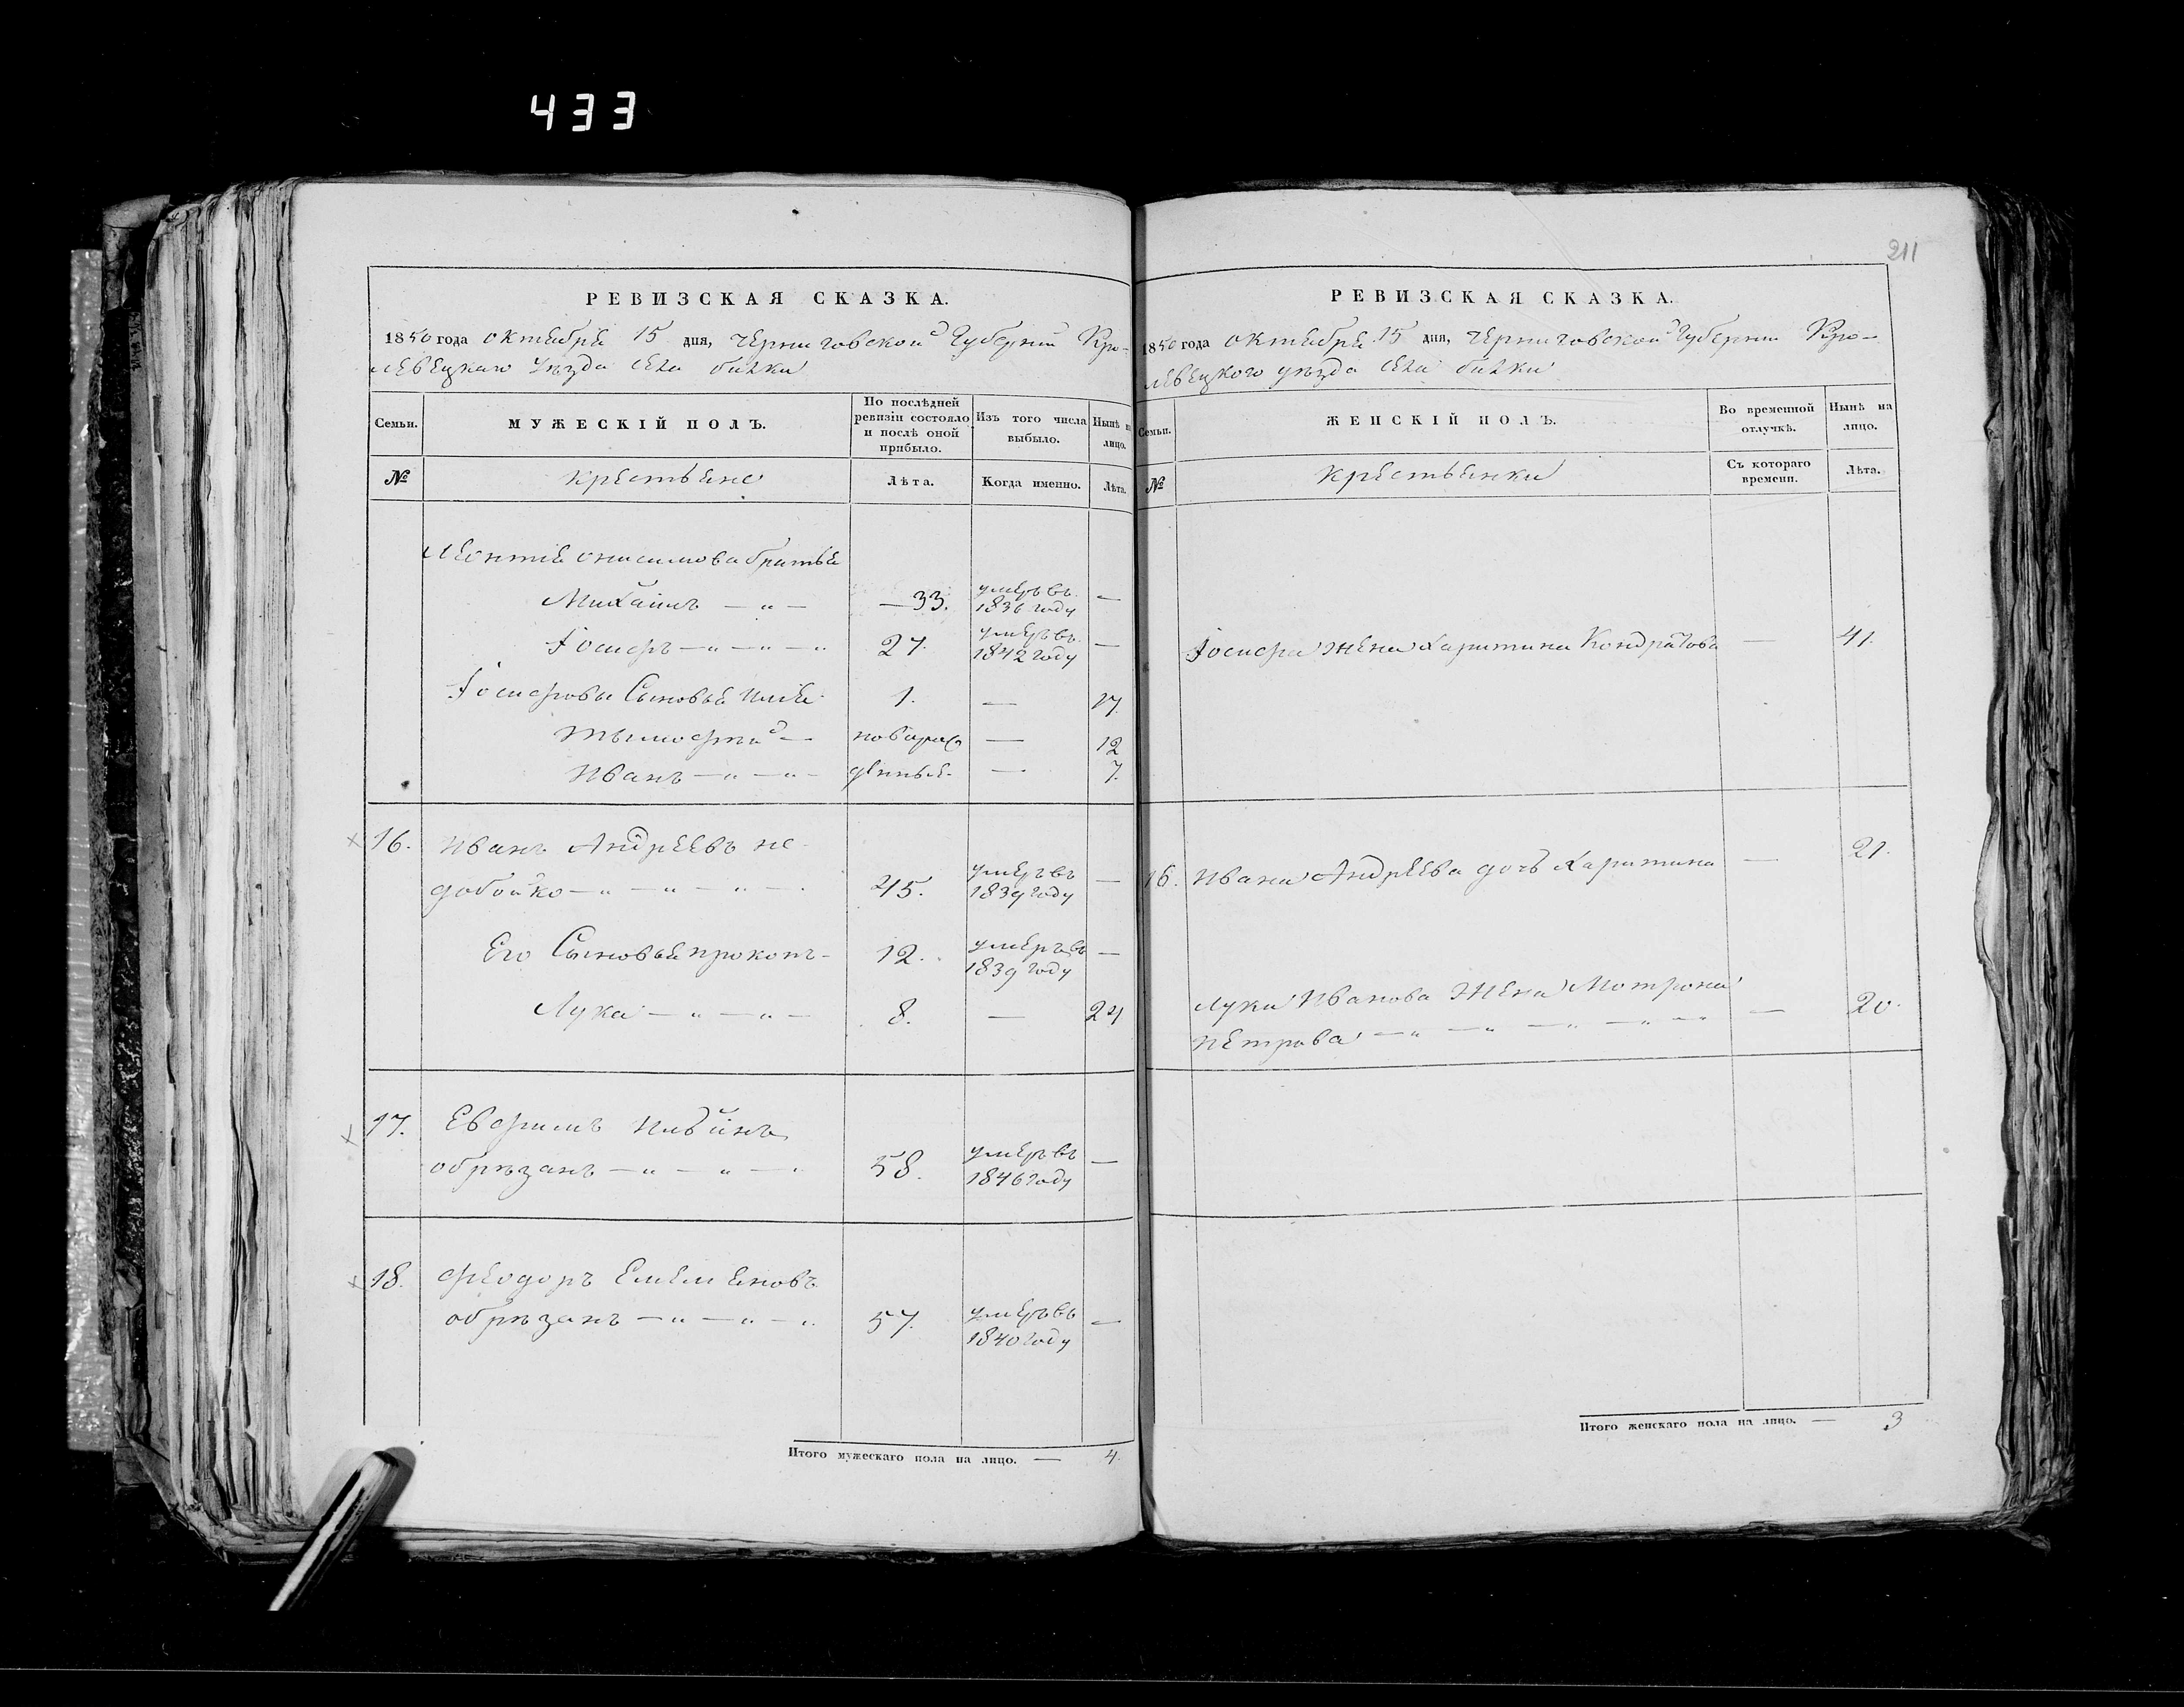 433
211
РЕВИЗСКАЯ СКАЗКА.
1850 года октября 15 дня, Черниговской Губернии Кро-
левецкаго уезда села билки
Семьи.
МУЖЕСКІЙ ПОЛЪ.
По послѣдней ревизіи состояло и послѣ оной прибыло.
Изъ того числа выбыло.
Нынѣ н лицо.
№
крестьяне
Лѣта.
Когда именно.
Лѣта.
Леонтия онисимова братья
Михаилъ — „ — —33. умеръ въ 1836 году —
Іосифъ — „ — „ — „ 27. умеръ въ 1842 году —
Іосифовы Сыновья илия 1. — 17.
тымофей — новорож 12
Иванъ — „ — „ — денные — 7.
16. Иванъ Андреевъ не-
добойко — „ — „ — „ — 45. умеръ въ 1839 году —
Его Сыновья прокопъ — 12. умеръ въ 1839 году —
Лука — „ — „ — 8. — 24
17. Евфимъ
обрѣзанъ — „ — „ — „ 58. умеръ въ 1846 году —
18. Феодоръ Емелиановъ
обрѣзанъ — „ — „ — „ 57. умеръ въ 1840 году —
Итого мужескаго пола на лицо. — 4.
РЕВИЗСКАЯ СКАЗКА.
1850 года октября 15 дня, Черниговской Губернии Кро-
левецкого уезда села билки
Семьи.
ЖЕНСКІЙ ПОЛЪ.
Во временной отлучкѣ.
Нынѣ на лицо.
№
крестьянки
Съ котораго времени.
Лѣта.
Іосифа жена Харитина Кондратова — 41.
16. Ивана Андреева дочь Харитина — 21.
Луки Иванова жена Мотрона
петрова — „ — „ — „ — „ — „ — 20.
Итого женскаго пола на лицо. — 3